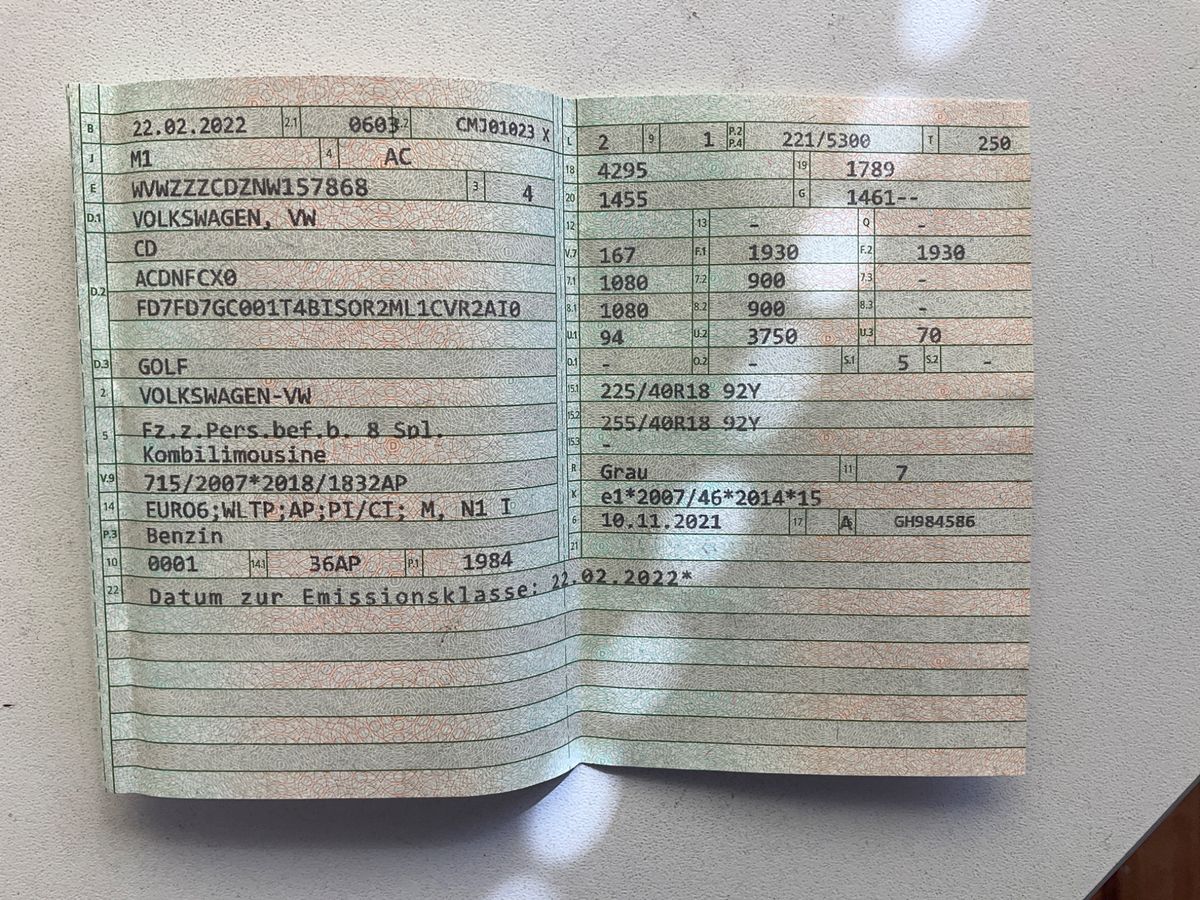 B 22.02.2022 2.1 0603 2.2 CMJ01023 X
J M1 4 AC
E WVWZZZCDZNW157868 3 4
D.1 VOLKSWAGEN, VW
CD
D.2 ACDNFCX0
FD7FD7GC001T4BISOR2ML1CVR2AI0
D.3 GOLF
2 VOLKSWAGEN-VW
5 Fz.z.Pers.bef.b. 8 Spl.
Kombilimousine
V.9 715/2007*2018/1832AP
14 EURO6;WLTP;AP;PI/CI; M, N1 I
P.3 Benzin
10 0001 14.1 36AP P.1 1984
22 Datum zur Emissionsklasse: 22.02.2022*
L 2 9 1 P.2 P.4 221/5300 T 250
18 4295 19 1789
20 1455 G 1461--
12 13 - Q -
V.7 167 F.1 1930 F.2 1930
7.1 1080 7.2 900 7.3 -
8.1 1080 8.2 900 8.3 -
U.1 94 U.2 3750 U.3 70
O.1 - O.2 - S.1 5 S.2 -
15.1 225/40R18 92Y
15.2 255/40R18 92Y
15.3 -
R Grau 11 7
K e1*2007/46*2014*15
6 10.11.2021 17 A 16 GH984586
21